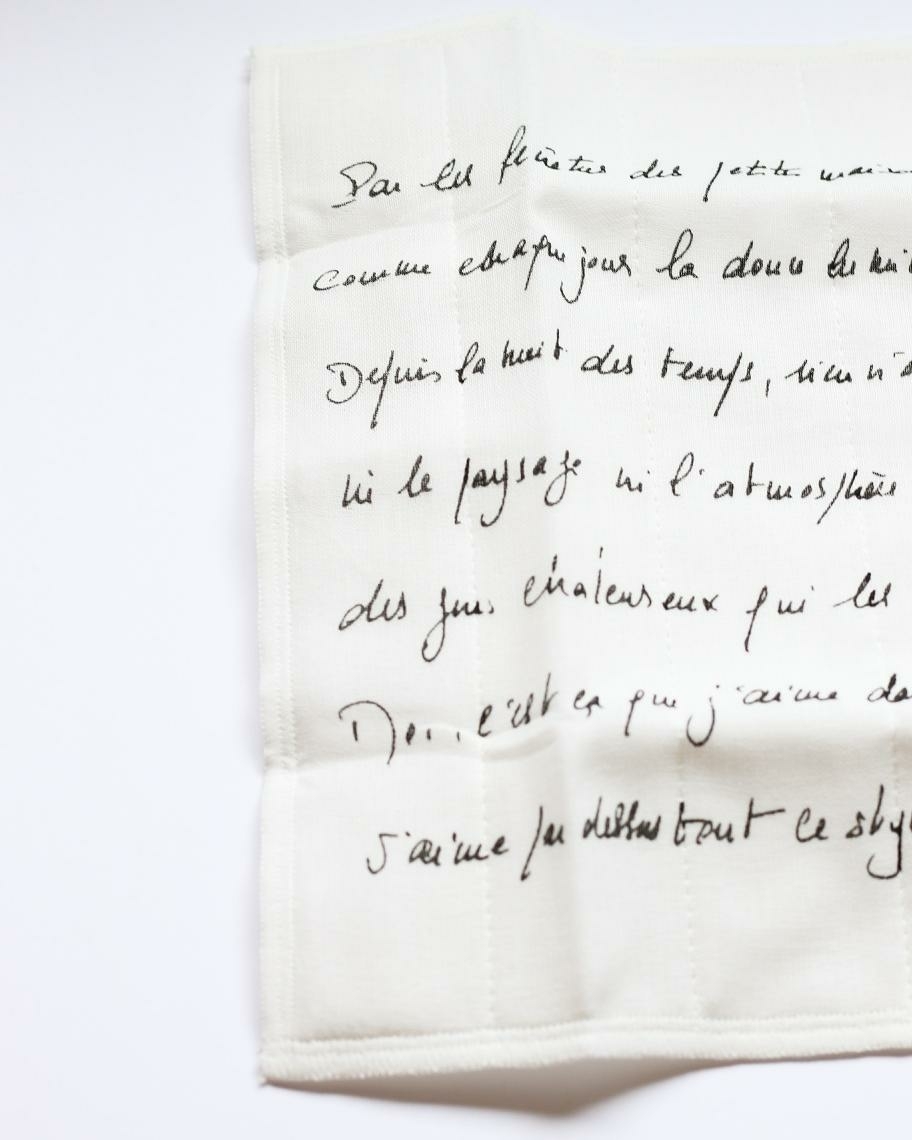 Par les fenêtres des petites
comme chaque jour la douce
Depuis la nuit des temps, rien n'a
ni le paysage ni l'atmosphère
des feux chaleureux qui les
c'est ça que j'aime
J'aime par dessus tout ce